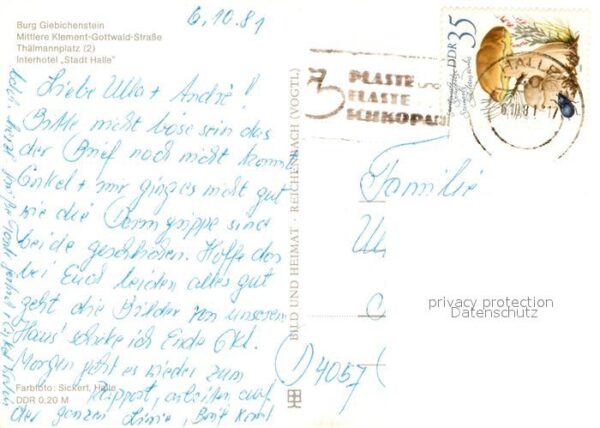 Burg Giebichenstein
Mittlere Klement-Gottwald-Straße
Thälmannplatz (2)
Interhotel „Stadt Halle"
6.10.81
Liebe Ulla + André!
Bitte nicht böse sein das
der Brief noch nicht kommt
Enkel + mir ging es nicht gut
wie die Darmgrippe sind
beide geschrieben. Hoffe das
bei Euch beiden alles gut
geht die Bilder von unserem
Haus schicke ich Ende Okt.
Morgen geht es wieder zum
arbeiten auf
der ganzen Linie, Brief kommt
Farbfoto: Sickert, Halle
DDR 0,20 M
BILD UND HEIMAT · REICHENBACH (VOGTL)
PLASTE
ELASTE
SCHKOPAU
DDR 35
HALLE
Familie
U
C
D 4057
privacy protection
Datenschutz